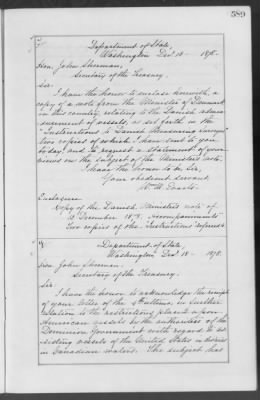 589
Department of State,
Washington Dec. 18 - 1878.
Hon. John Sherman,
Secretary of the Treasury.
Sir:
I have the honor to enclose herewith, a
copy of a note from the Minister of Denmark
in this country, relating to the Danish admea-
surement of vessels, as set forth in the
"Instructions to Danish Measuring Surveyors"
two copies of which, I have sent to you
to-day, and to request a statement of your
views on the subject of the Minister's note.
I have the honor to be, Sir,
Your obedient servant
Wm. M. Evarts.
Enclosures
Copy of the Danish Minister's note of
December 1878,
Two copies of the "Instructions"
Department of State,
Washington Dec. 18 - 1878.
Hon. John Sherman,
Secretary of the Treasury.
Sir:
I have the honor to acknowledge the receipt
of your letter of the ultimo, in further
relation to the restrictions placed upon
American vessels by the authorities of the
Dominion Government with regard to as-
sisting vessels of the United States in distress
in Canadian waters. The subject has